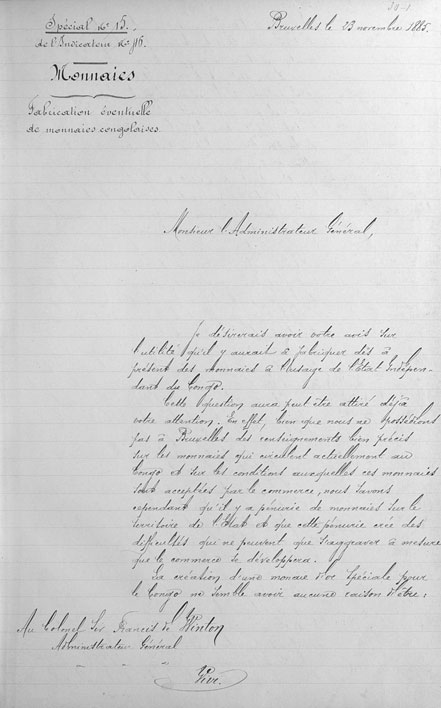 Spécial Nº 15.
de l'Indicateur Nº
Monnaies
Fabrication éventuelle
de monnaies congolaises.
Bruxelles le 23 novembre 1885.
Monsieur l'Administrateur Général,
Je désirerais avoir votre avis sur
l'utilité qu'il y aurait à fabriquer dès à
présent des monnaies à l'usage de l'Etat Indépen-
dant du Congo.
Cette question aura peut être attiré déjà
votre attention. En effet, bien que nous ne possédions
pas à Bruxelles des renseignements bien précis
sur les monnaies qui circulent actuellement au
Congo et sur les conditions auxquelles ces monnaies
sont acceptées par le commerce, nous savons
cependant qu'il y a pénurie de monnaies sur le
territoire de l'Etat et que cette pénurie crée des
difficultés qui ne peuvent que s'aggraver à mesure
que le commerce se développera.
La création d'une monnaie d'or spéciale pour
le Congo ne semble avoir aucune raison d'être:
Au Colonel Sir Francis de Winton
Administrateur Général
Vivi.